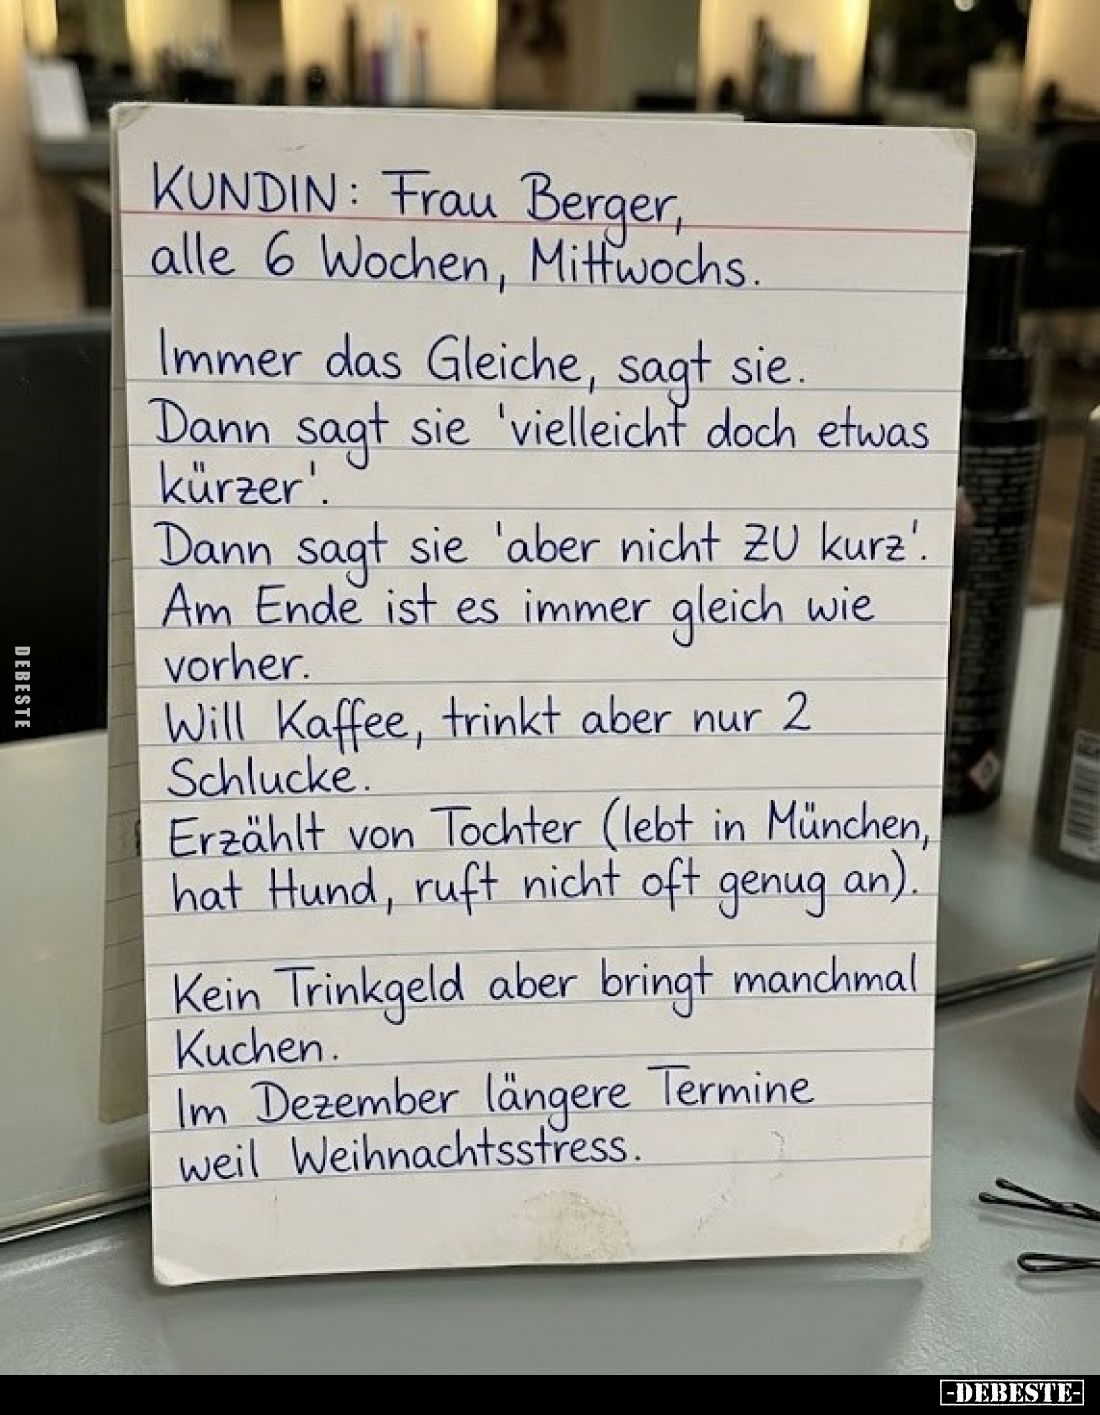 KUNDIN: Frau Berger,
alle 6 Wochen, Mittwochs.
Immer das Gleiche, sagt sie.
Dann sagt sie 'vielleicht doch etwas
kürzer'.
Dann sagt sie 'aber nicht ZU kurz'.
Am Ende ist es immer gleich wie
vorher.
Will Kaffee, trinkt aber nur 2
Schlucke.
Erzählt von Tochter (lebt in München,
hat Hund, ruft nicht oft genug an).
Kein Trinkgeld aber bringt manchmal
Kuchen.
Im Dezember längere Termine
weil Weihnachtsstress.
DEBESTE
-DEBESTE-